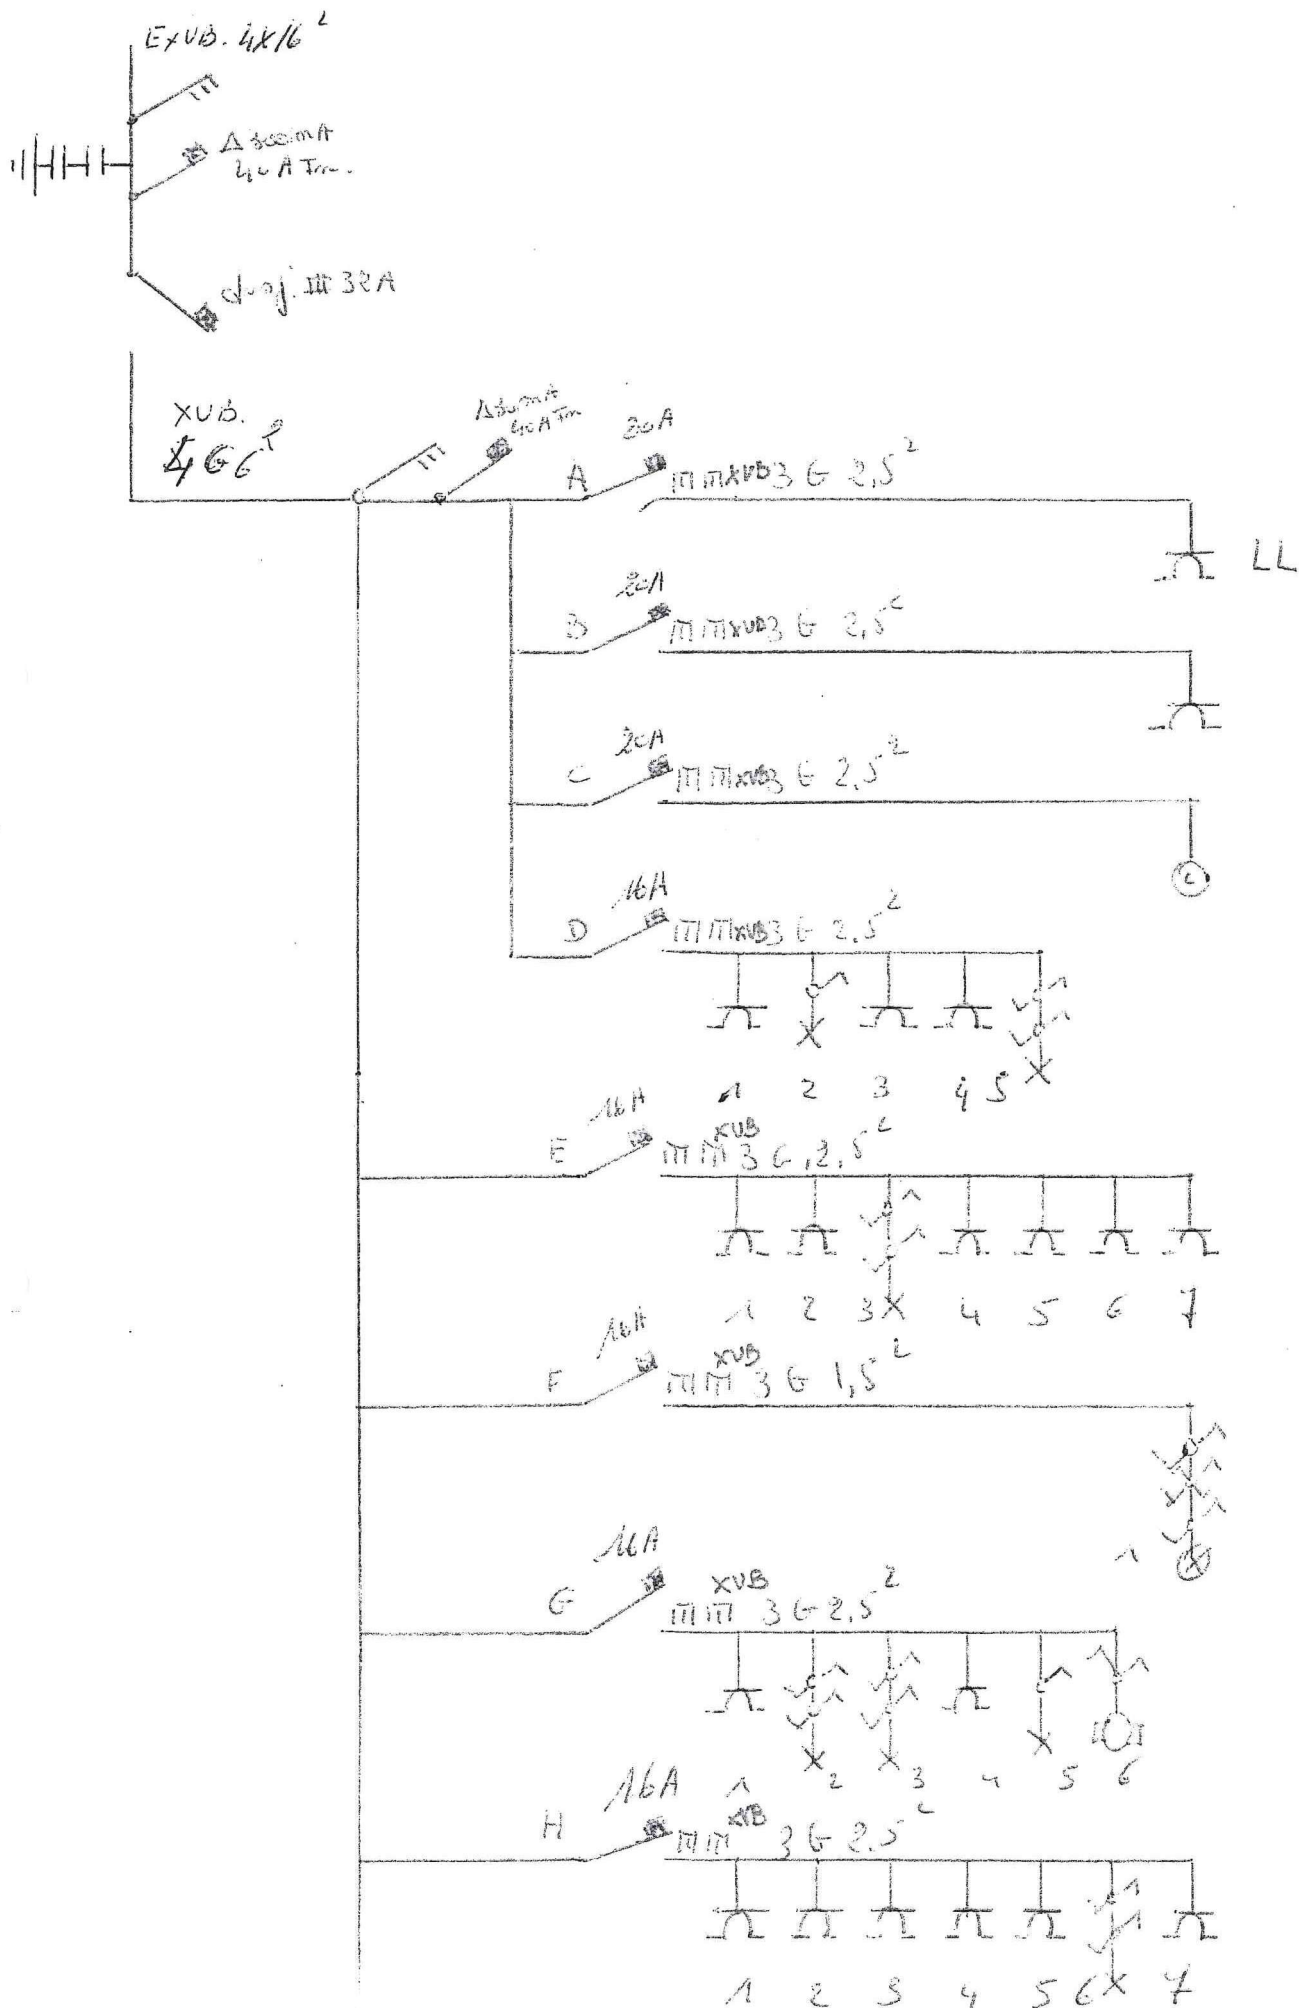 EXVB. 4X16²
Δ 300mA
40A Tm.
disj. III 32A
XVB.
4G6²
Δ30mA
40A Tm
20A
A
XVB 3 G 2,5²
LL
20A
B
XVB 3 G 2,5²
20A
C
XVB 3 G 2,5²
16A
D
XVB 3 G 2,5²
1 2 3 4 5
16A
E
XVB
3 G 2,5²
1 2 3 4 5 6 7
16A
F
XVB
3 G 1,5²
1
16A
G
XVB
3 G 2,5²
1 2 3 4 5 6
16A
H
XVB
3 G 2,5²
1 2 3 4 5 6 7